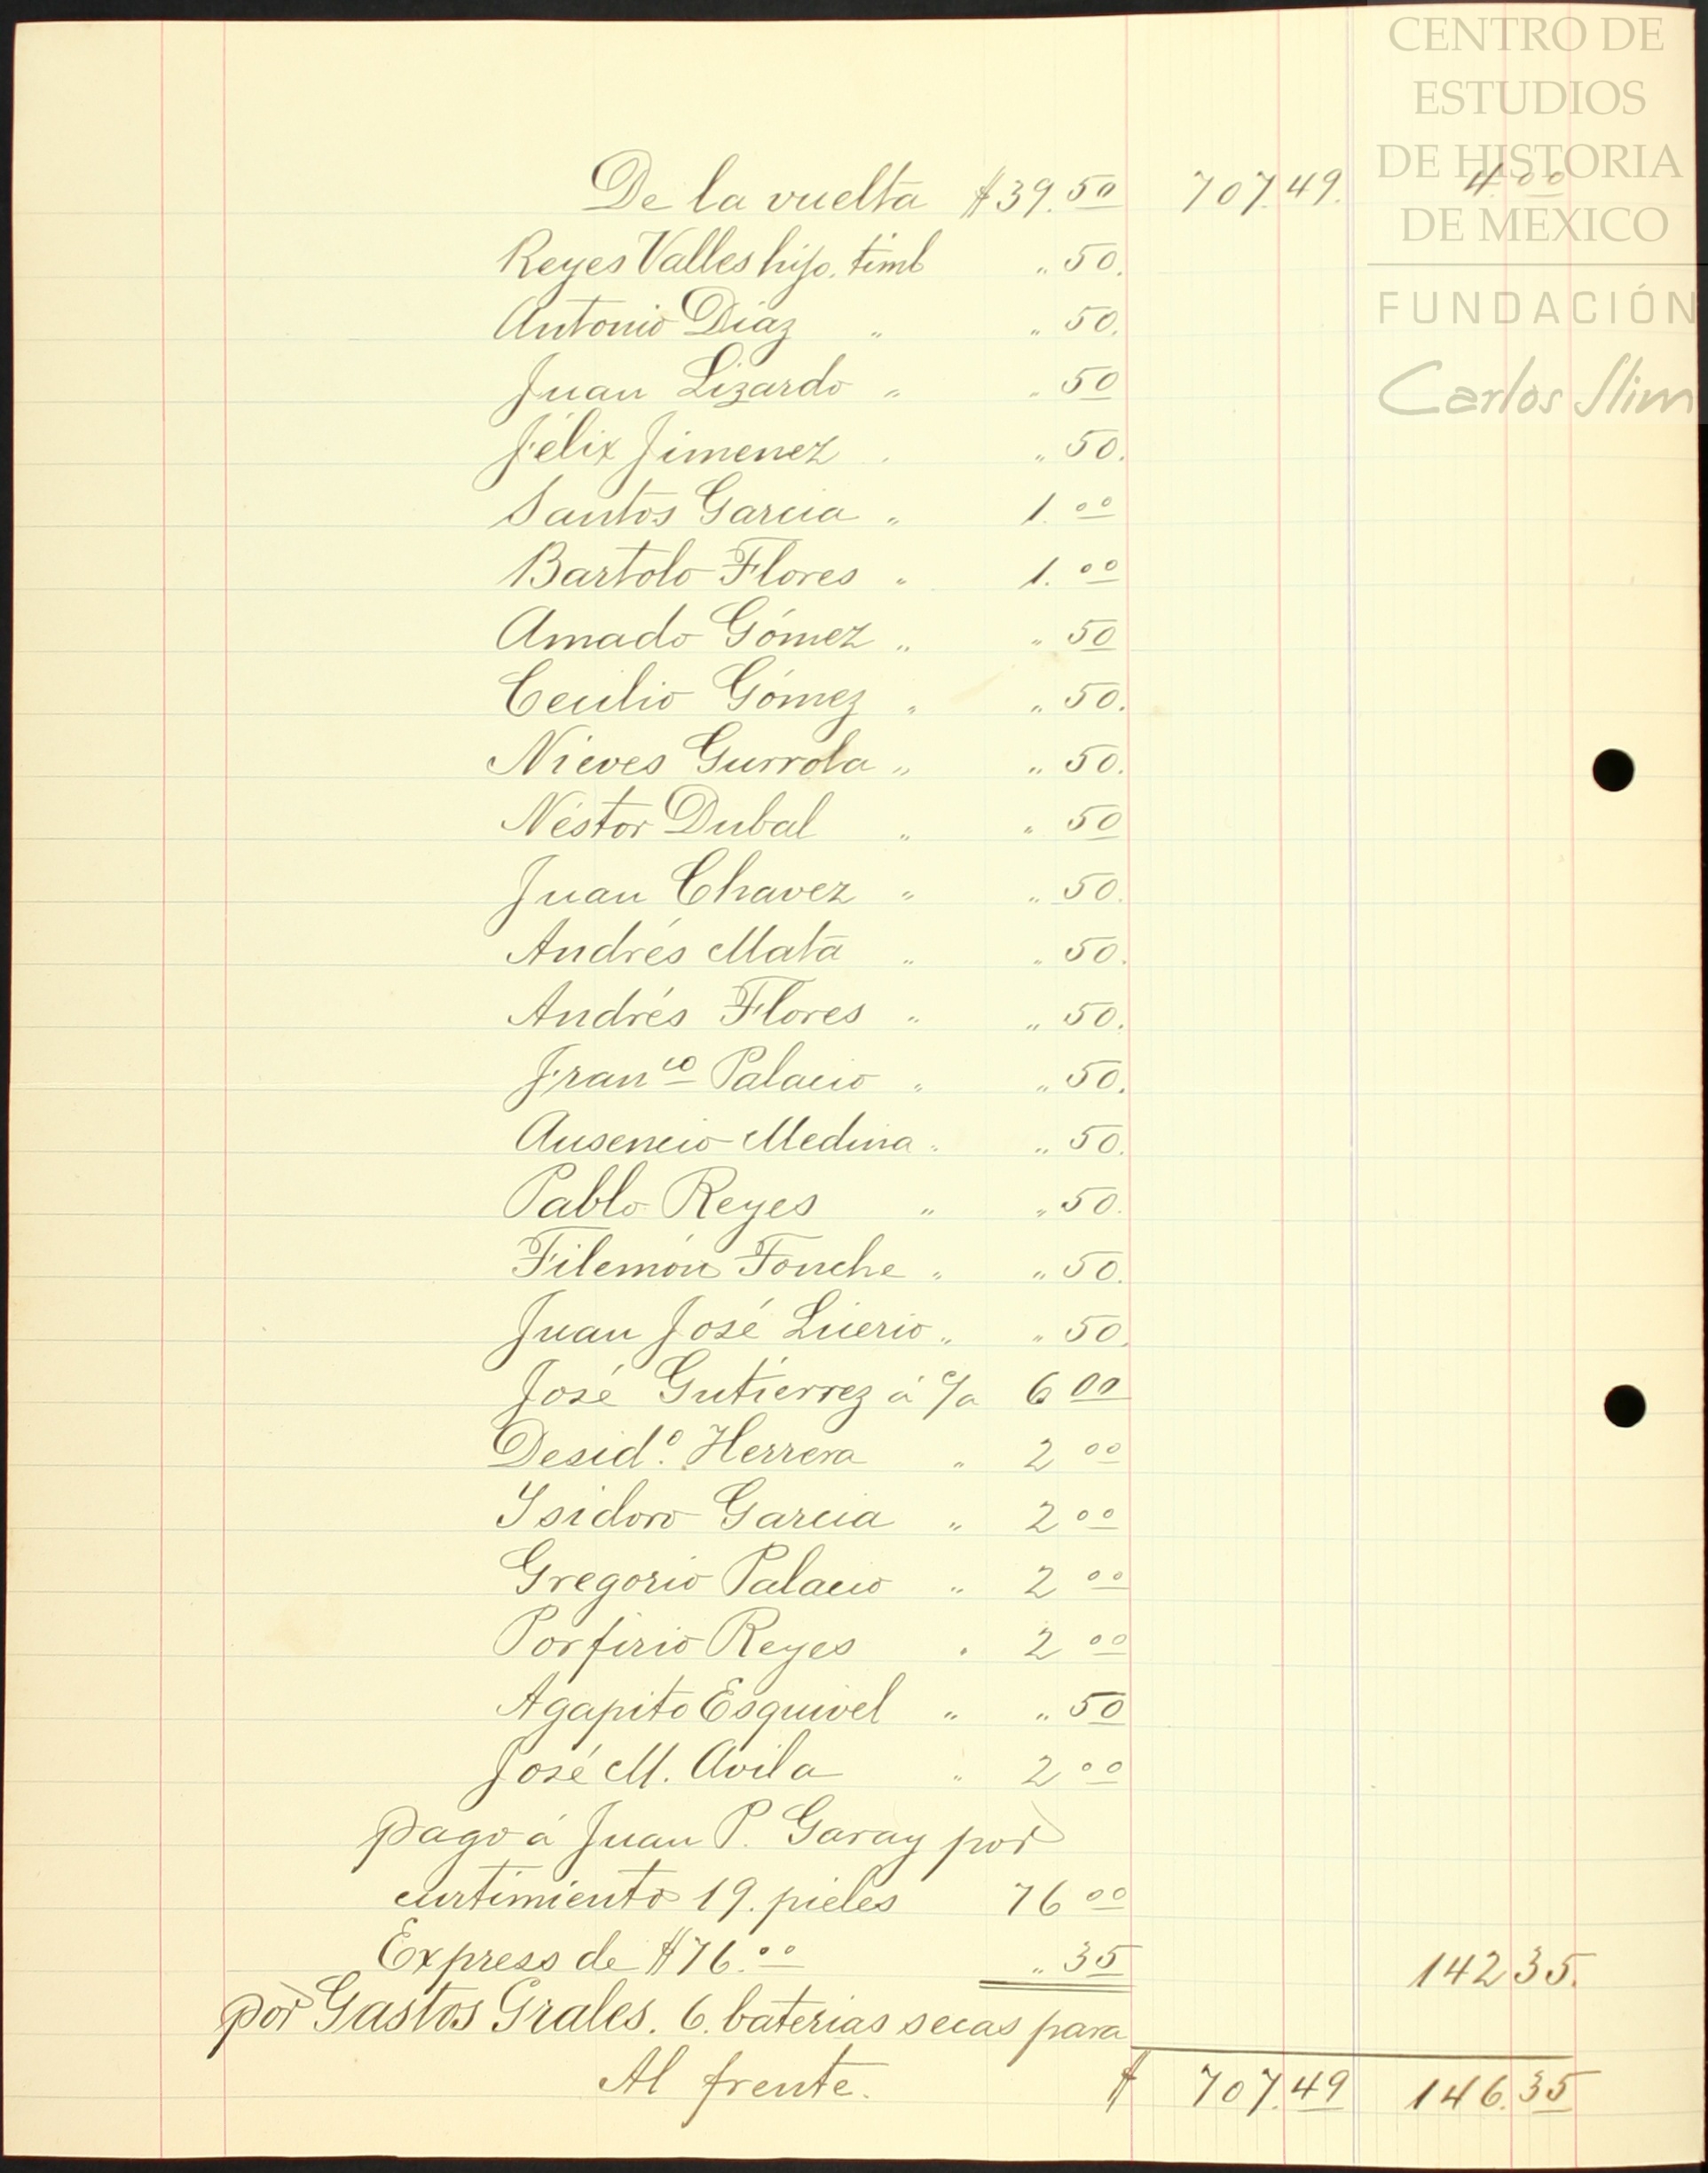 CENTRO DE
ESTUDIOS
DE HISTORIA
DE MÉXICO
FUNDACIÓN
Carlos Slim
De la vuelta $39.50 707.49. 4.00
Reyes Valles hijo. timb „ 50.
Antonio Diaz „ „ 50.
Juan Lizardo „ „ 50
Félix Jimenez . „ 50.
Santos Garcia „ 1.00
Bartolo Flores „ 1.00
Amado Gómez „ „ 50
Cecilio Gómez „ „ 50.
Nieves Gurrola „ „ 50.
Néstor Dubal „ „ 50
Juan Chavez „ „ 50.
Andrés Mata „ „ 50.
Andrés Flores „ „ 50.
Franco Palacio „ „ 50.
Ausencio Medina „ „ 50.
Pablo Reyes „ „ 50.
Filemón Fouche „ „ 50.
Juan José Licerio „ „ 50.
José Gutierrez á c/a 6 00
Desido. Herrera „ 2 00
Ysidoro Garcia „ 2 00
Gregorio Palacio „ 2 00
Porfirio Reyes „ 2 00
Agapito Esquivel „ „ 50
José M. Avila „ 2 00
pago á Juan P. Garay por
curtimiento 19. pieles 76 00
Express de $76.00 „ 35 142 35.
por Gastos Grales. 6. baterias secas para
Al frente. $ 707.49 146.35